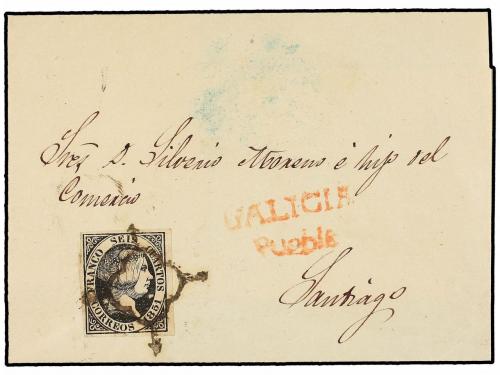 Sres D. Silverio Moreno é hijo del
Comercio
GALICIA
Pueble
Santiago
FRANCO SEIS CUARTOS
CORREOS 1851